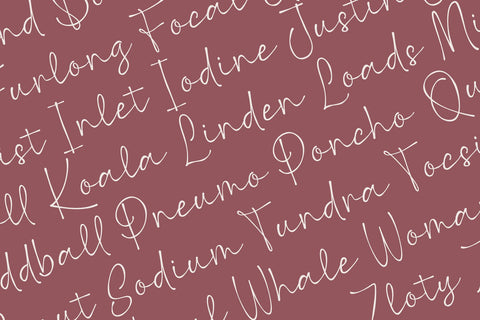 Furlong Focal
Inlet Iodine Justin
ll Koala Linden Loads Mi
ddball Pneumo Poncho Qu
Sodium Tundra Tocsi
Whale Woma
Zloty